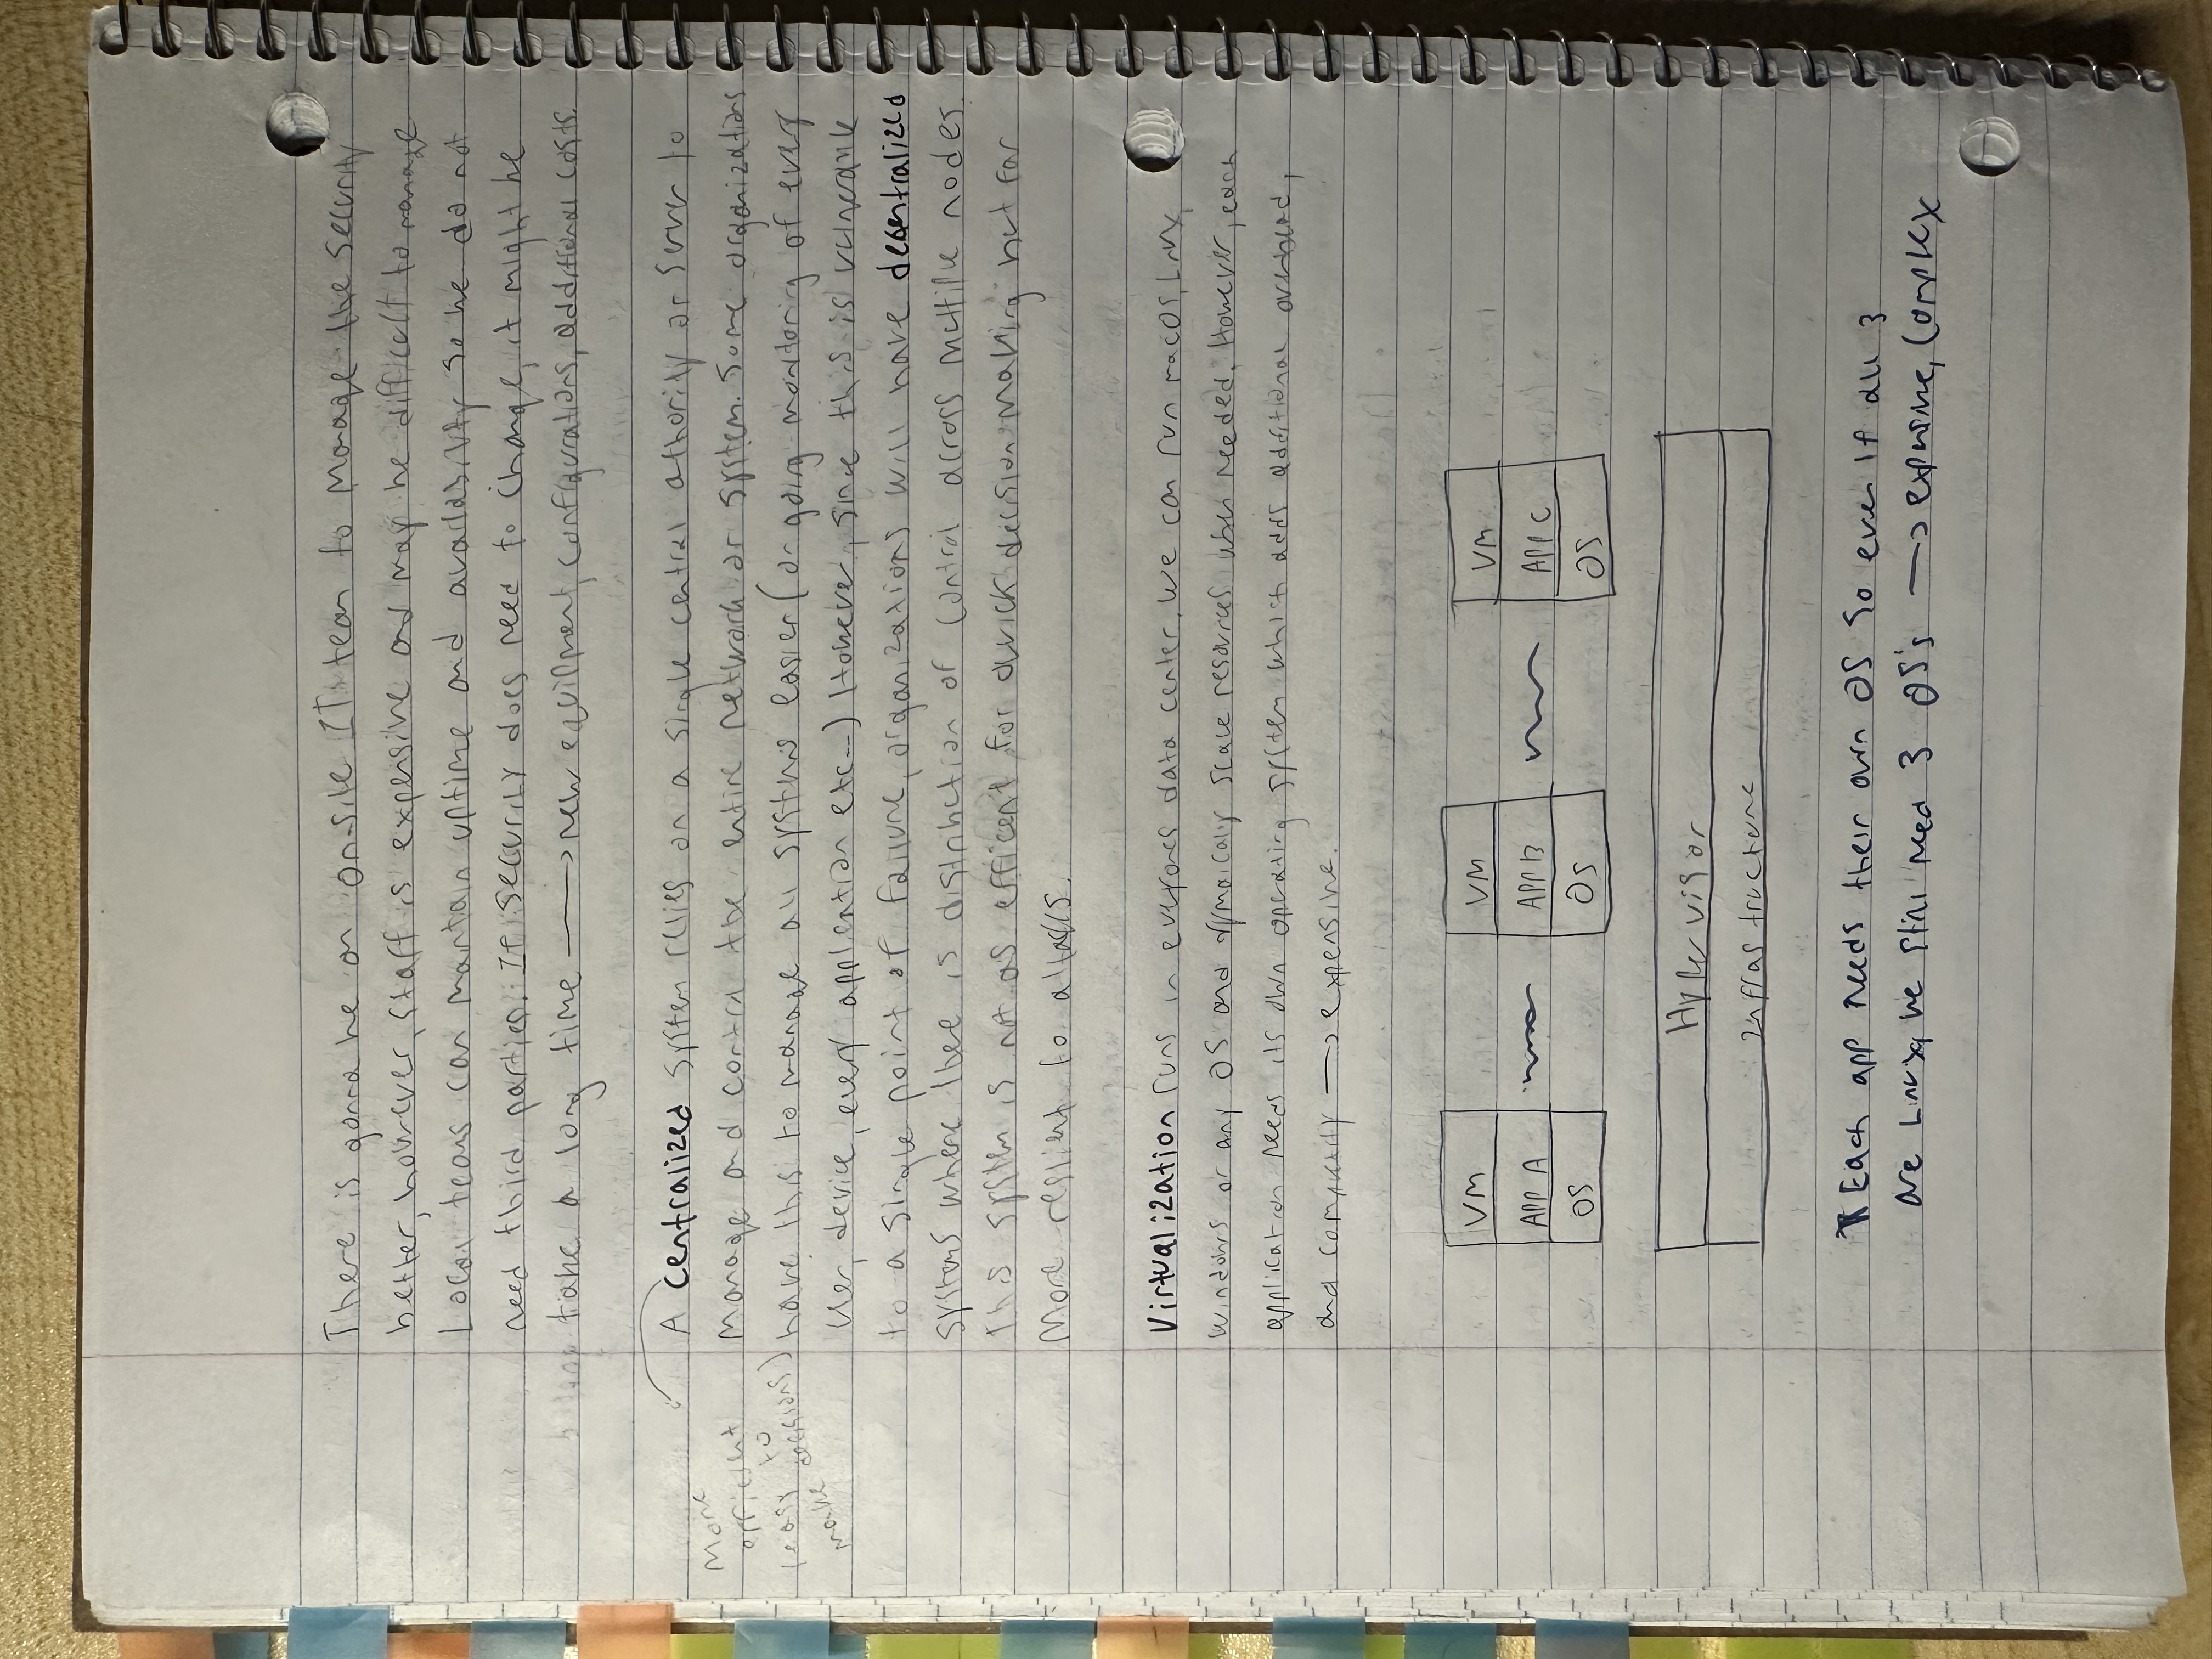 There is gonna be an on-site IT team to manage the security
better, however, staff is expensive and may be difficult to manage
Local teams can maintain uptime and availability so we do not
need third parties. If security does need to change, it might be
take a long time → new equipment, configurations, additional costs.
A centralized system relies on a single central authority or server to
manage and control the entire network or system. Some organizations
have this to manage all systems easier (on going monitoring of every
user, device, every application etc...) However, since this is vulnerable
to a single point of failure, organizations will have decentralized
systems where there is distribution of control across multiple nodes.
This system is not as efficent for quick decision making but far
More resilient to attacks.
More
efficient
(easy to
make decisions)
Virtualization runs in everyones data center. We can run macOS, Linux,
Windows or any OS and dynamically scale resources when needed. However, each
application needs its own operating system which adds additional overhead,
and complexity → expensive.
VM VM VM
APP A APP B APP C
OS OS OS
Hypervisor
Infrastructure
* Each app needs their own OS so even if all 3
are Linux, we still need 3 OS's → expensive, complex